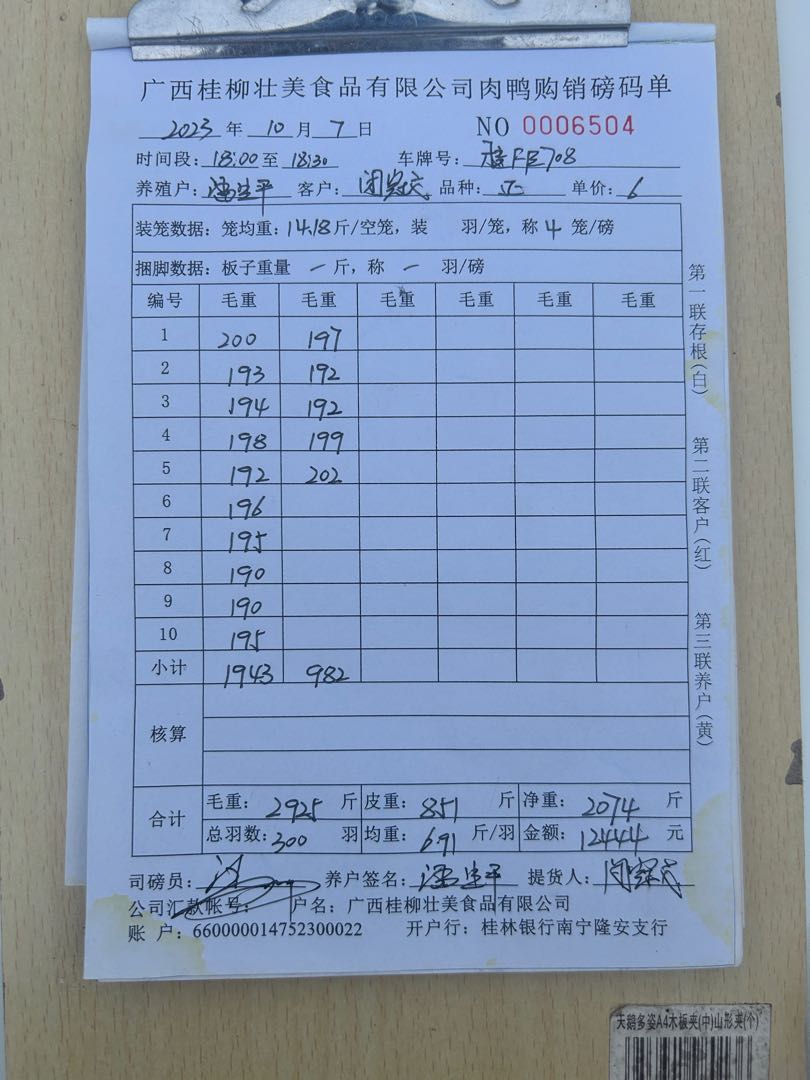 广西桂柳壮美食品有限公司肉鸭购销磅码单
2023 年 10 月 7 日 NO 0006504
时间段: 18:00 至 18:30 车牌号:
养殖户: 客户: 品种: 单价: 6
装笼数据: 笼均重: 14.18 斤/空笼, 装 羽/笼, 称 4 笼/磅
捆脚数据: 板子重量 — 斤, 称 — 羽/磅
编号 毛重 毛重 毛重 毛重 毛重 毛重
1 200 197
2 193 192
3 194 192
4 198 199
5 192 202
6 196
7 195
8 190
9 190
10 195
小计 1943 982
核算
合计 毛重: 2925 斤 皮重: 851 斤 净重: 2074 斤
总羽数: 300 羽 均重: 6.91 斤/羽 金额: 12444 元
司磅员: 养户签名: 提货人:
公司汇款帐号: 户名: 广西桂柳壮美食品有限公司
账 户: 660000014752300022 开户行: 桂林银行南宁隆安支行
第一联存根(白) 第二联客户(红) 第三联养户(黄)
天鹅多姿A4木板夹(中)山形夹(个)